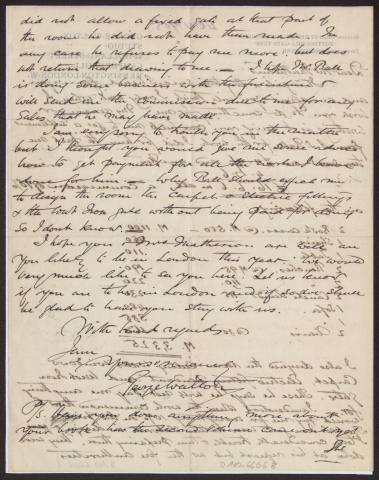 did not allow a fixed gate at that part of
the room he did not have them made. In
any case he refuses to pay me more, but does
not return the drawing to me — I hope Mr Ball
is doing some business with the furniture &
will send me the commission due to me for any
sales that he may have made.
I am very sorry to trouble you in this matter
but I thought you would give me some advice
how to get payment for all the work I have
done for him — Why Ball should expect me
to design the room the carpet & electric fittings
& the wrot Iron gate without being paid for doing
so I dont know.
I hope you & Mrs Mathewson are well are
you likely to be in London this year. we would
very much like to see you here. Let us know
if you are to be in London and if so we should
be glad to have you stay with us.
With kind regards
Yours
George Walton
P.S. Have you done anything more about
your book has the second edition come out yet